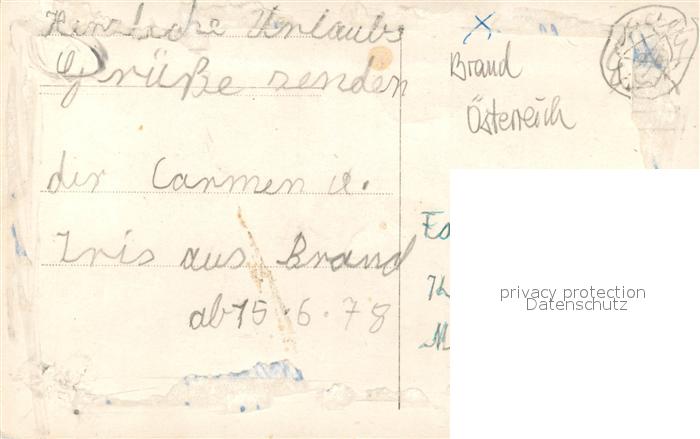 Herzliche Urlaubs
Grüße senden
dir Carmen u.
Iris aus Brand
ab 15.6.78
Brand
Österreich
privacy protection
Datenschutz